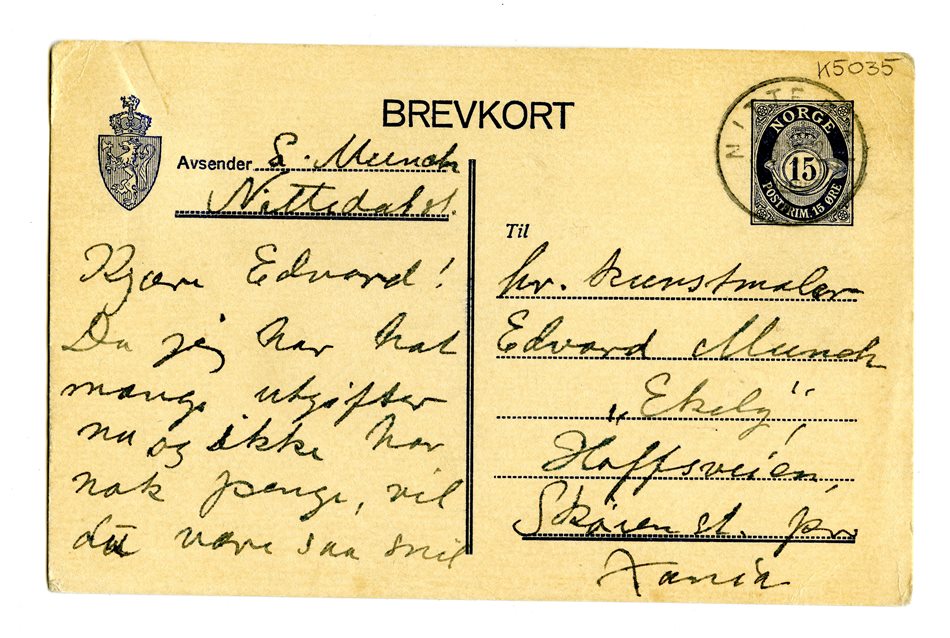 K5035
BREVKORT
NITTE
NORGE
15
POSTFRIM. 15 ØRE
Avsender L. Munch
Nittedal st.
Kjære Edvard!
Da jeg har hat
mange utgifter
nu og ikke har
nok penge, vil
du være saa snil
Til
hr. kunstmaler
Edvard Munch
„Ekely“,
Hoffsveien,
Skøien st. pr.
Xania